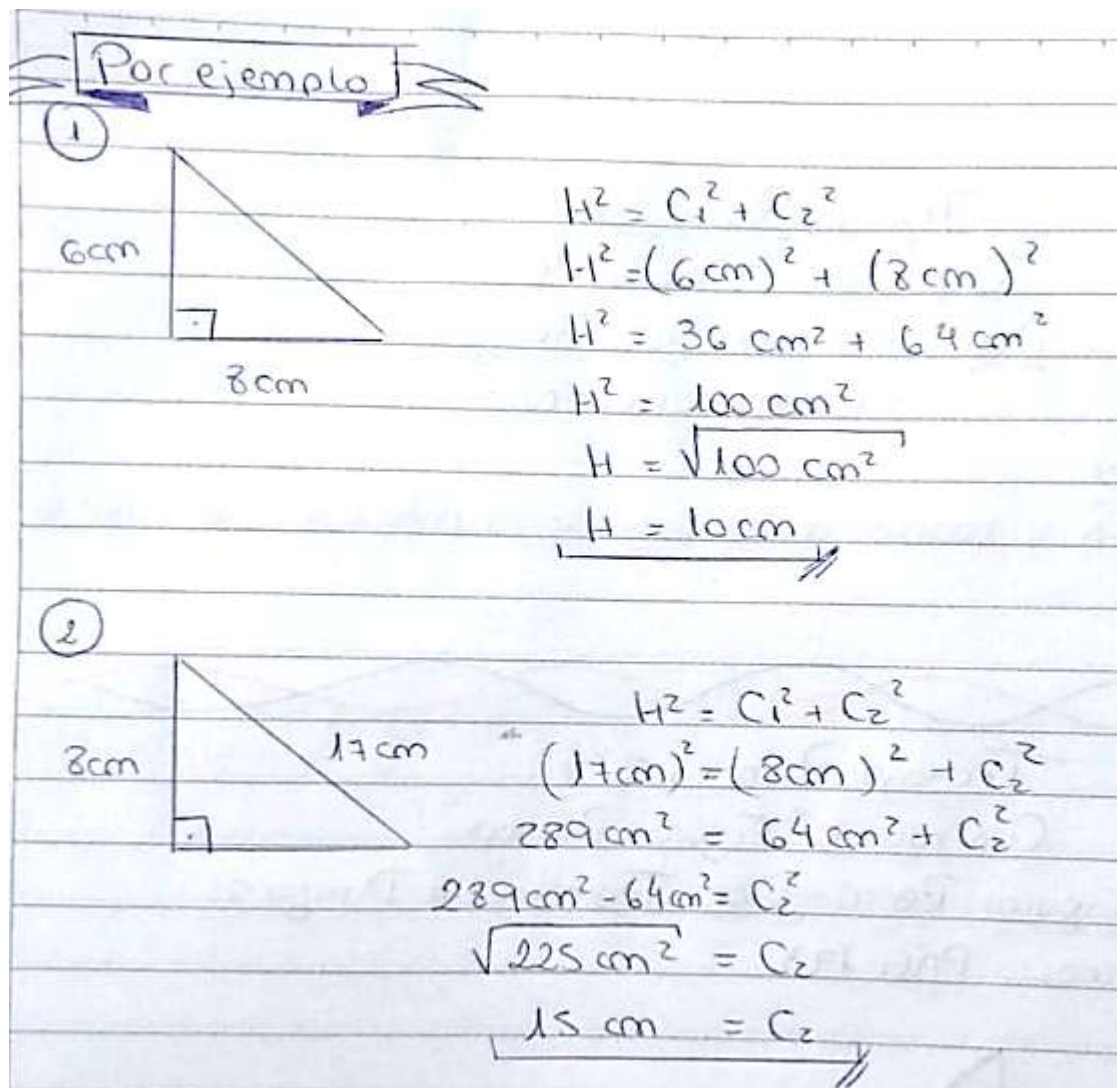 Por ejemplo
1
6cm
8cm
H² = C₁² + C₂²
H² = (6cm)² + (8cm)²
H² = 36 cm² + 64 cm²
H² = 100 cm²
H = √100 cm²
H = 10cm
2
8cm
17cm
H² = C₁² + C₂²
(17cm)² = (8cm)² + C₂²
289cm² = 64cm² + C₂²
289cm² - 64cm² = C₂²
√225 cm² = C₂
15 cm = C₂